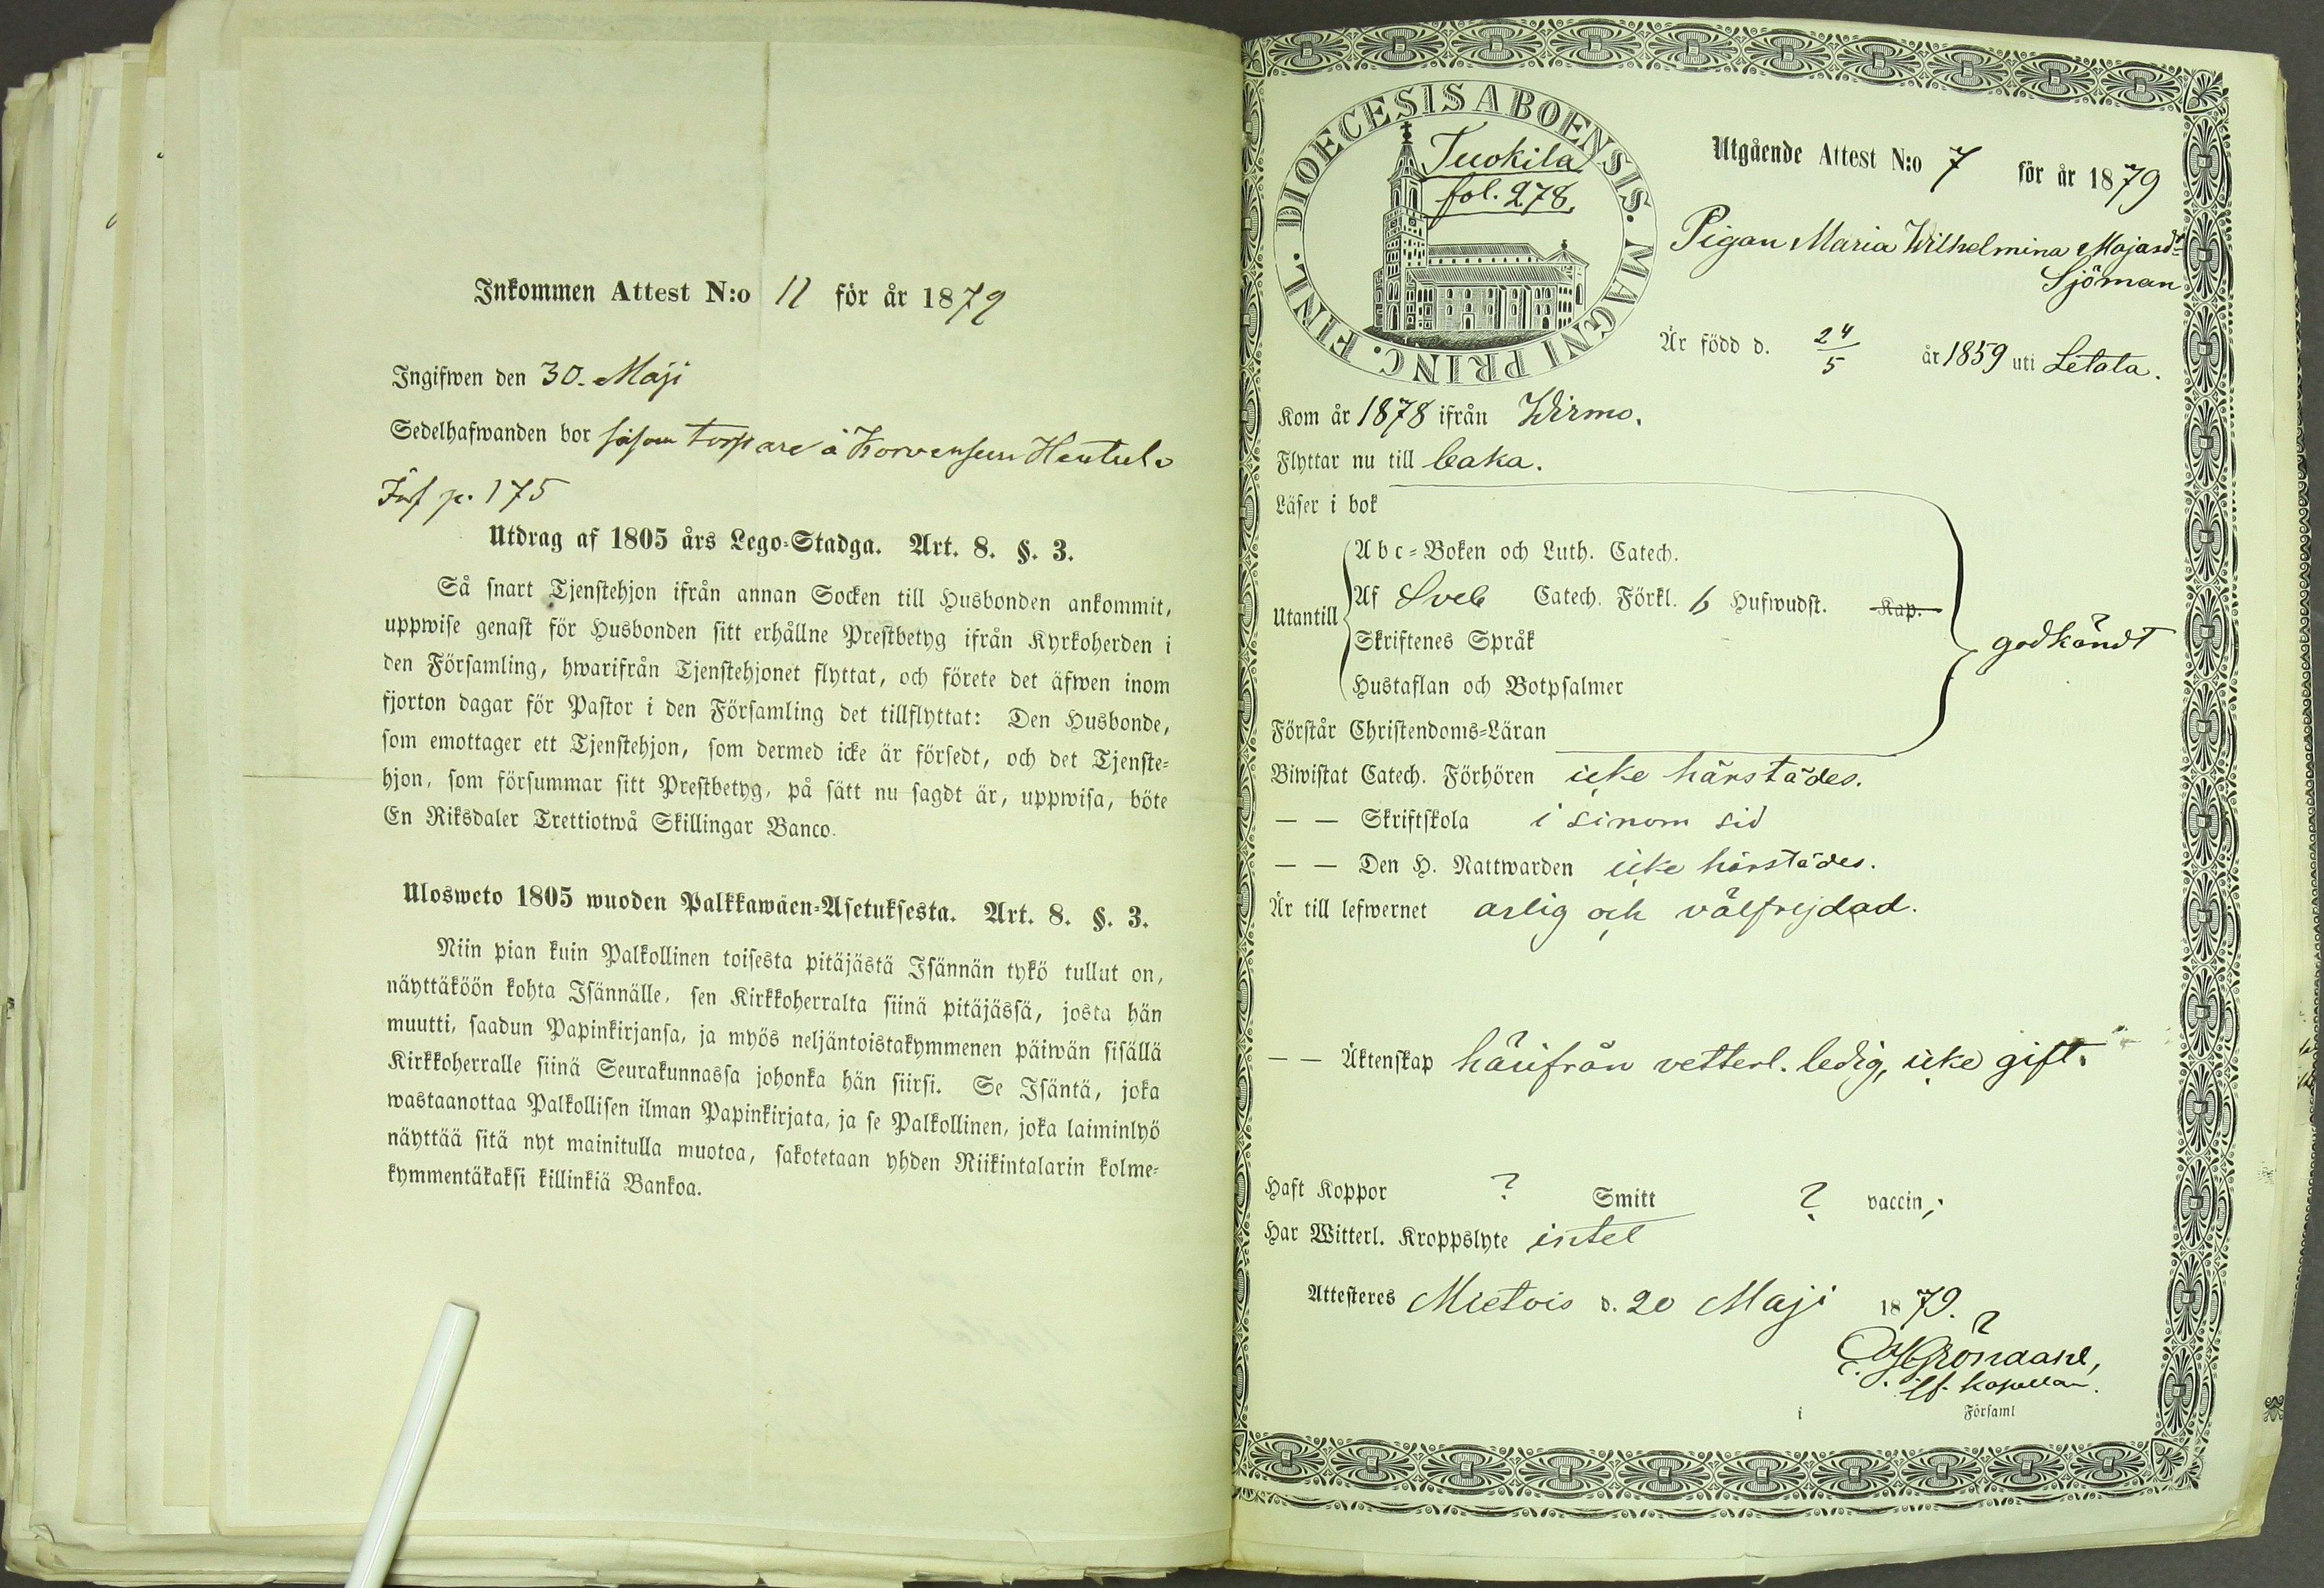 Inkommen Attest N:o 11 för år 1879
Ingifwen den 30. Maji
Sedelhafwanden bor såsom torpare å Korvensuu Hentula
Inf p. 175
Utdrag af 1805 års Lego-Stadga. Art. 8. §. 3.
Så snart Tjenstehjon ifrån annan Socken till Husbonden ankommit,
uppwise genast för Husbonden sitt erhållne Prestbetyg ifrån Kyrkoherden i
den Församling, hwarifrån Tjenstehjonet flyttat, och förete det äfwen inom
fjorton dagar för Pastor i den Församling det tillflyttat: Den Husbonde,
som emottager ett Tjenstehjon, som dermed icke är försedt, och det Tjenste-
hjon, som försummar sitt Prestbetyg, på sätt nu sagdt är, uppwisa, böte
En Riksdaler Trettiotwå Skillingar Banco.
Ulosweto 1805 wuoden Palkkawäen-Asetuksesta. Art. 8. §. 3.
Niin pian kuin Palkollinen toisesta pitäjästä Isännän tykö tullut on,
näyttäköön kohta Isännälle, sen Kirkkoherralta siinä pitäjässä, josta hän
muutti, saadun Papinkirjansa, ja myös neljäntoistakymmenen päiwän sisällä
Kirkkoherralle siinä Seurakunnassa johonka hän siirsi. Se Isäntä, joka
wastaanottaa Palkollisen ilman Papinkirjata, ja se Palkollinen, joka laiminlyö
näyttää sitä nyt mainitulla muotoa, sakotetaan yhden Riikintalarin kolme-
kymmentäkaksi killinkiä Bankoa.
DIOECESIS ABOENSIS. MAGNI PRINC. FINL.
Tuokila
fol. 278.
Utgående Attest N:o 7 för år 1879
Pigan Maria Wilhelmina Majasdr
Sjöman
Är född d. 24/5 år 1859 uti Letala.
Kom år 1878 ifrån Wirmo.
Flyttar nu till
Läser i bok
Abc-Boken och Luth. Catech.
Utantill Af Sveb Catech. Förkl. 6 Hufwudst. Kap.
Skriftenes Språk
godkändt
Hustaflan och Botpsalmer
Förstår Christendoms-Läran
Biwistat Catech. Förhören icke härstädes.
— — Skriftskola i sinom tid
— — Den H. Nattwarden icke härstädes.
Är till lefwernet ärlig och välfrejdad.
— — Äktenskap härifrån vetterl. ledig, icke gift.
Haft Koppor ? Smitt ? vaccin;
Har Witterl. Kroppslyte intet
Attesteres Mietois d. 20 Maji 1879.
Gröndahl,
kapellan.
i Församl